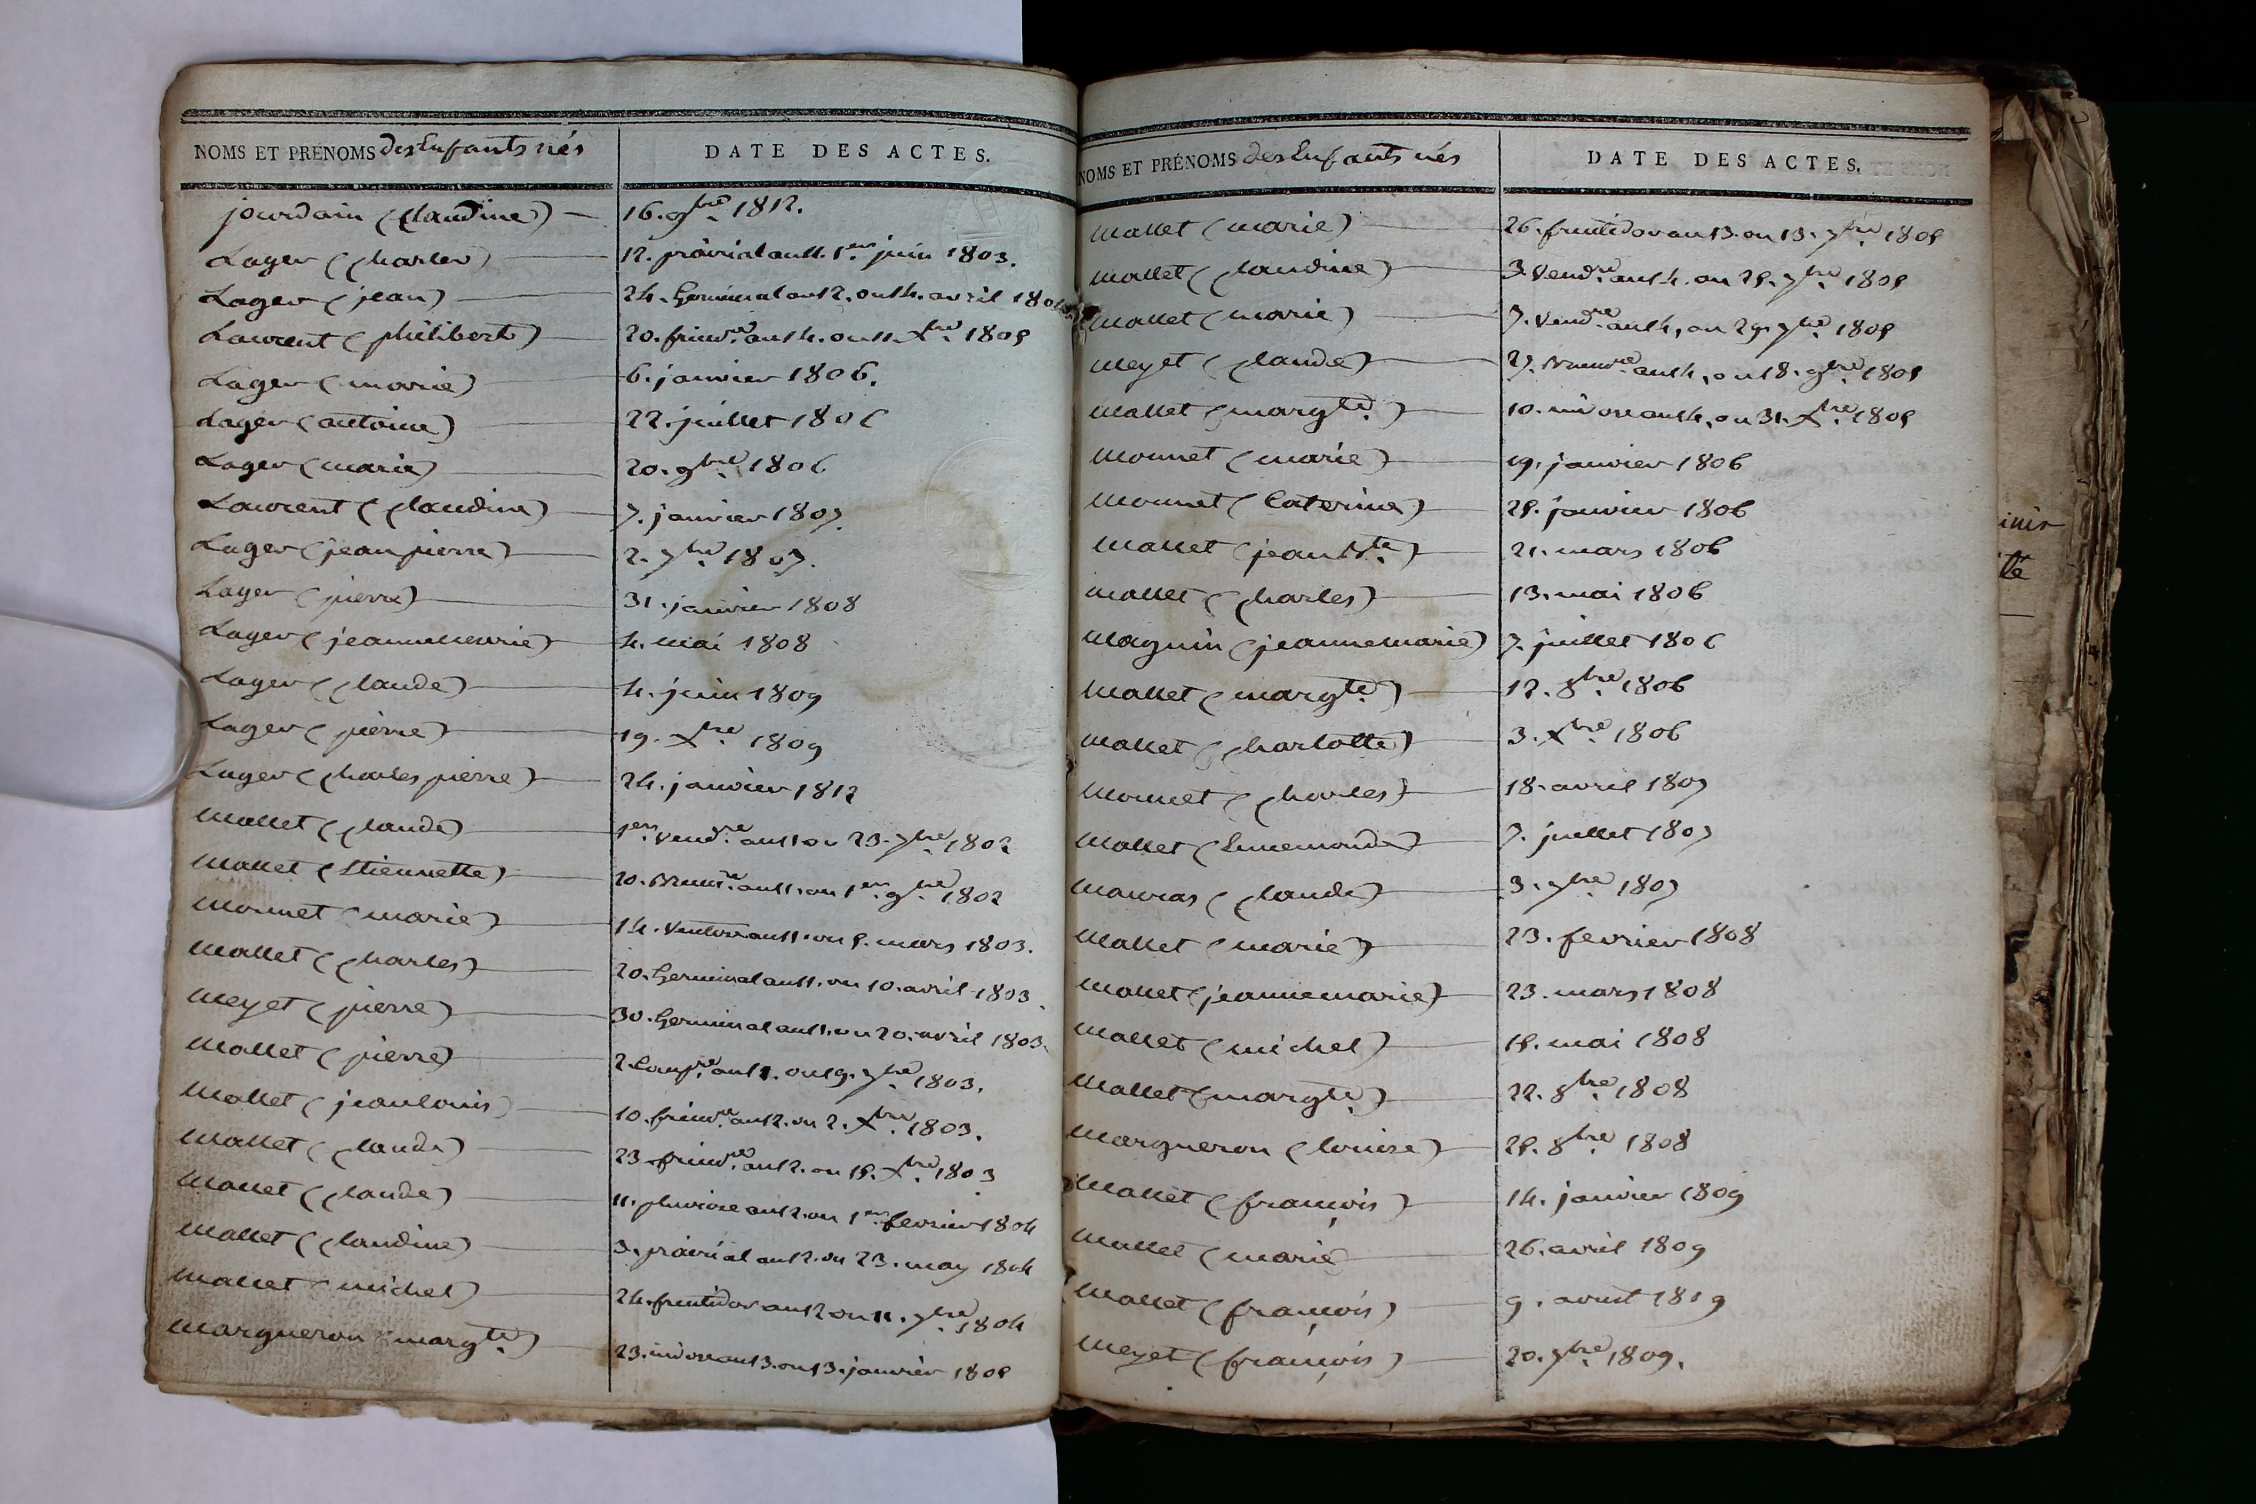 NOMS ET PRÉNOMS des Enfants nés
DATE DES ACTES.
jourdain (Claudine) — 16. 9bre 1812.
Lager (Charles) — 12. prairial an 11. 1er juin 1803.
Lager (jean) — 24. Germinal an 12. ou 14. avril 1804
Laurent (philibert) — 20. frimre an 14. ou 11. Xbre 1805
Lager (marie) — 6. janvier 1806.
Lager (antoine) — 22. juillet 1806
Lager (marie) — 20. 9bre 1806
Laurent (Claudine) — 7. janvier 1807.
Lager (jean pierre) — 2. 7bre 1807.
Lager (pierre) — 31. janvier 1808
Lager (jeannemarie) — 4. mai 1808
Lager (Claude) — 4. juin 1809
Lager (pierre) — 19. Xbre 1809
Lager (Charles pierre) — 24. janvier 1812
Mallet (Claude) — 1er Vendre an 11 ou 23. 7bre 1802
Mallet (Etiennette) — 10. Brumre an 11. ou 1er 9bre 1802
Monnet (marie) — 14. Ventose an 11. ou 5. mars 1803.
Mallet (Charles) — 20. Germinal an 11. ou 10. avril 1803.
Meyet (pierre) — 30. Germinal an 11. ou 20. avril 1803.
Mallet (pierre) — 2. Compre an 11. ou 19. 7bre 1803.
Mallet (jean louis) — 10. frimre an 12. ou 2. Xbre 1803.
Mallet (Claude) — 23 frimre an 12. ou 15. Xbre 1803
Mallet (Claude) — 11. pluviose an 12. ou 1er fevrier 1804
Mallet (Claudine) — 3. prairial an 12. ou 23. may 1804
Mallet (michel) — 24. fructidor an 12 ou 11. 7bre 1804
Margueron (margte) — 23. nivose an 13. ou 13. janvier 1805
NOMS ET PRÉNOMS des Enfants nés
DATE DES ACTES.
Mallet (marie) — 26. fructidor an 13. ou 13. 7bre 1805
Mallet (Claudine) — 3. Vendre an 14. ou 25. 7bre 1805
Mallet (marie) — 7. Vendre an 14, ou 29. 7bre 1805
Meyet (Claude) — 27. Brumre an 14, ou 18. 9bre 1805
Mallet (margte) — 10. nivose an 14, ou 31. Xbre 1805
Monnet (marie) — 19. janvier 1806
Monnet (Caterine) — 25. janvier 1806
Mallet (jean Bte) — 21. mars 1806
Mallet (Charles) — 13. mai 1806
Magnin (jeannemarie) 7. juillet 1806
Mallet (margte) — 12. 8bre 1806
Mallet (Charlotte) — 3. Xbre 1806
Monnet (Charles) — 18. avril 1807
Mallet (Ennemonde) — 7. juillet 1807
Mauras (Claude) — 3. 7bre 1807
Mallet (marie) — 23. fevrier 1808
Mallet (jeannemarie) — 23. mars 1808
Mallet (michel) — 15. mai 1808
Mallet (margte) — 22. 8bre 1808
Margueron (louise) — 25. 8bre 1808
Mallet (françois) — 14. janvier 1809
Mallet (marie — 26. avril 1809
Mallet (françois) — 9. avril 1809
Meyet (françois) — 20. 7bre 1809.